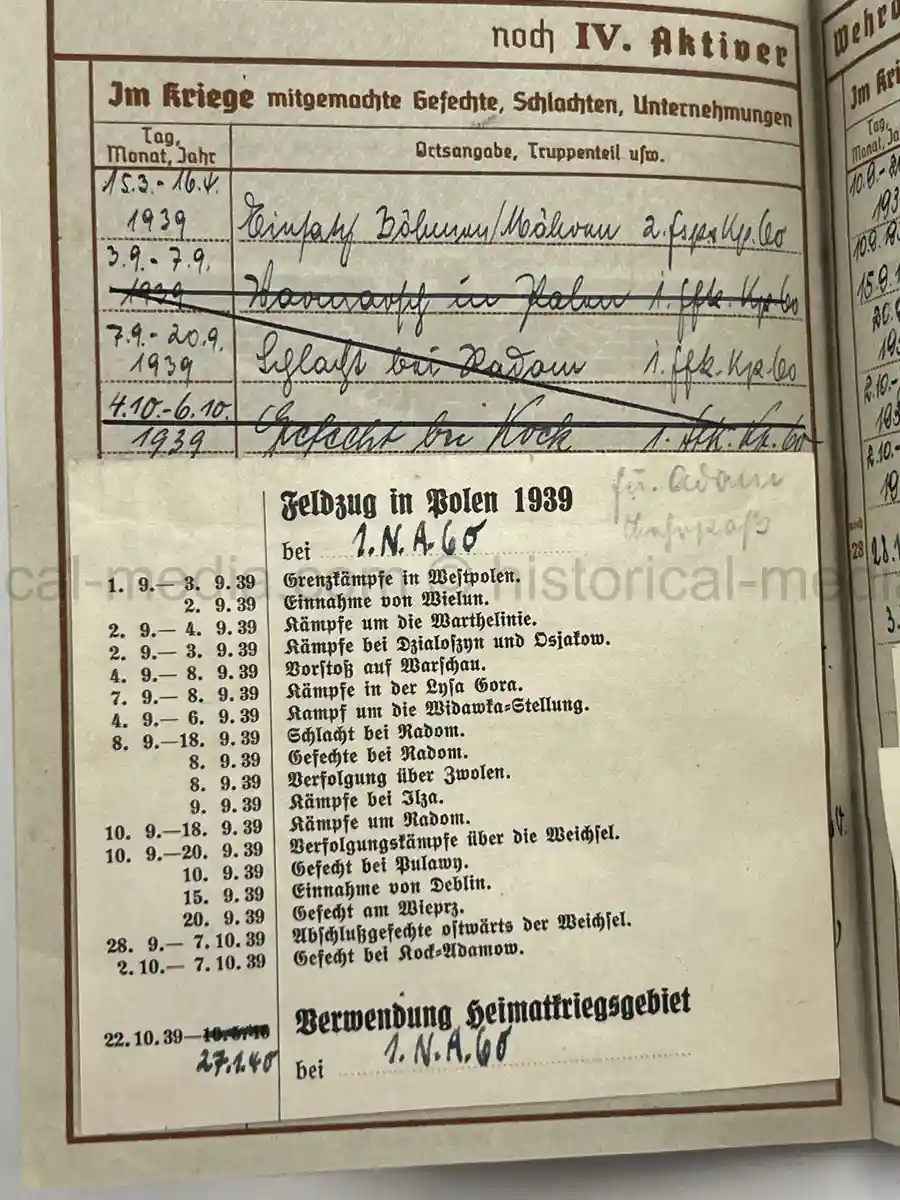 noch IV. Aktiver
Im Kriege mitgemachte Gefechte, Schlachten, Unternehmungen
Tag, Monat, Jahr
Ortsangabe, Truppenteil usw.
15.3. - 16.4. 1939 Einsatz Böhmen/Mähren 2. Kp. 60
3.9. - 7.9. 1939 in Polen 1. Kp. 60
7.9. - 20.9. 1939 Schlacht bei Radom 1. Kp. 60
4.10. - 6.10. 1939 Gefecht bei Kock 1. Kp. 60
Feldzug in Polen 1939
bei 1. N. A. 60
1. 9.— 3. 9.39 Grenzkämpfe in Westpolen.
2. 9.39 Einnahme von Wielun.
2. 9.— 4. 9.39 Kämpfe um die Warthelinie.
2. 9.— 3. 9.39 Kämpfe bei Dzialoszyn und Osjakow.
4. 9.— 8. 9.39 Vorstoß auf Warschau.
7. 9.— 8. 9.39 Kämpfe in der Lysa Gora.
4. 9.— 6. 9.39 Kampf um die Widawka-Stellung.
8. 9.—18. 9.39 Schlacht bei Radom.
8. 9.39 Gefechte bei Radom.
8. 9.39 Verfolgung über Zwolen.
9. 9.39 Kämpfe bei Ilza.
10. 9.—18. 9.39 Kämpfe um Radom.
10. 9.—20. 9.39 Verfolgungskämpfe über die Weichsel.
10. 9.39 Gefecht bei Pulawy.
15. 9.39 Einnahme von Deblin.
20. 9.39 Gefecht am Wieprz.
28. 9.— 7.10.39 Abschlußgefechte ostwärts der Weichsel.
2.10.— 7.10.39 Gefecht bei Kock-Adamow.
Verwendung Heimatkriegsgebiet
22.10.39—
27.1.40
bei 1. N. A. 60
Im
Tag,
28